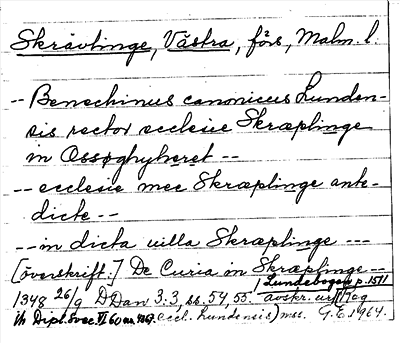 Skrävlinge, Västra, förs, Malm. l.
-- Benechinus canonicus Lunden-
sis rector ecclesie Skræplinge
in Ossøghyhæret --
-- ecclesie mee Skræplinge ante-
dicte --
-- in dicta uilla Skræplinge ---
[överskrift:] De Curia in Skræplinge --
1348 26/9 DDan 3:3, ss. 54, 55. avskr. ur
Lundebogen p. 151
Dipl. Svec. VI eccl. Lundensis) mes. G.E. 1964.